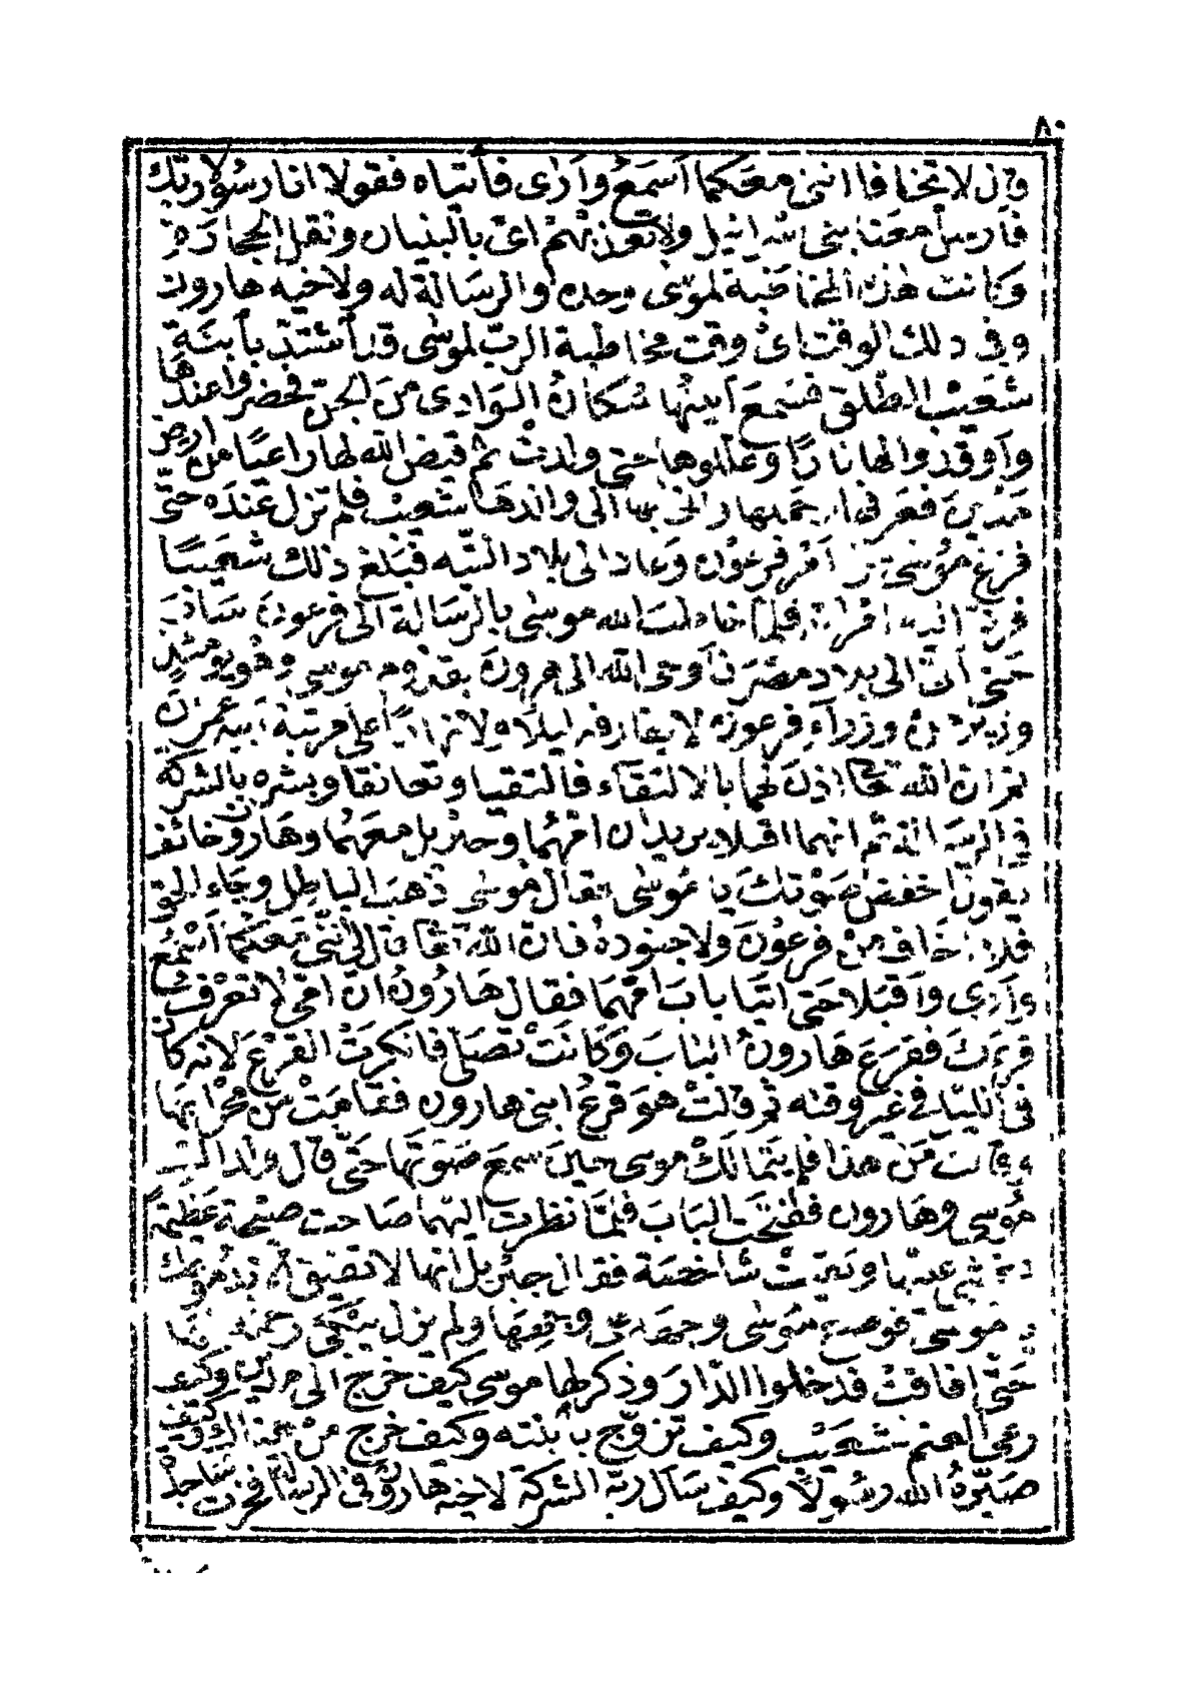 ٨٠
قال لا تخافا اننى معكما اسمع وارى فأتياه فقولا انا رسولا ربك
فارسل معنا بنى اسرائيل ولا تعذبهم اى بالبنيان ونقل الحجارة
وكانت هذه المخاطبة لموسى وحده والرسالة له ولاخيه هارون
وفى ذلك الوقت اى وقت مخاطبة الرب لموسى قد اشتد بابنة
شعيب الطلق فسمع انينها سكان الوادى من الجن فحضروا عندها
واوقدوا لها نارا وعللوها حتى ولدت ثم قيض الله لها راعيا من ارض
مدين فعرفها الى والدها شعيب فلم تزل عنده حتى
فرغ موسى من امر فرعون وعاد الى بلاد التيه فبلغ ذلك شعيبا
فلما خاطب الله موسى بالرسالة الى فرعون سار
حتى أتى الى بلاد مصر فأوحى الله الى هرون بقدوم موسى وهو يومئذ
وزير من وزراء فرعون لا يفارقه ليلا ولا نهارا على مرتبة ابيه عمران
ثم ان الله تعالى اذن لهما بالالتقاء فالتقيا وتعانقا وبشره بالشركة
فى الرسالة ثم انهما اقبلا يريدان امهما وجبريل معهما وهارون خائف
يقول اخفض صوتك يا موسى فقال موسى ذهب الباطل وجاء الحق
فلا اخاف من فرعون ولا جنوده فان الله تعالى قال لى اننى معكما اسمع
وارى واقبلا حتى اتيا باب امهما فقال هارون ان امى لا تعرف
قرعك فقرع هارون الباب وكانت تصلى فانكرت القرع لانه كان
فى الليل فى غير وقته ثم قالت هو قرع ابنى هارون فقامت من محرابها
وقالت من هذا فلم يتمالك موسى حين سمع صوتها حتى قال ولداك
موسى وهارون ففتحت الباب فلما نظرت اليهما صاحت صيحة عظيمة
وغشى عليها وبقيت شاخصة فقال جبريل انها لا تفيق
موسى فوضع موسى وجهه على وجهها ولم يزل يبكى رحمة لها
حتى افاقت فدخلوا الدار وذكر لها موسى كيف خرج الى مدين وكيف
رعى الغنم لشعيب وكيف تزوج بابنته وكيف خرج من عنده وكيف
صيره الله رسولا وكيف سأل ربه الشركة لاخيه هارون فى الرسالة فخرت ساجدة